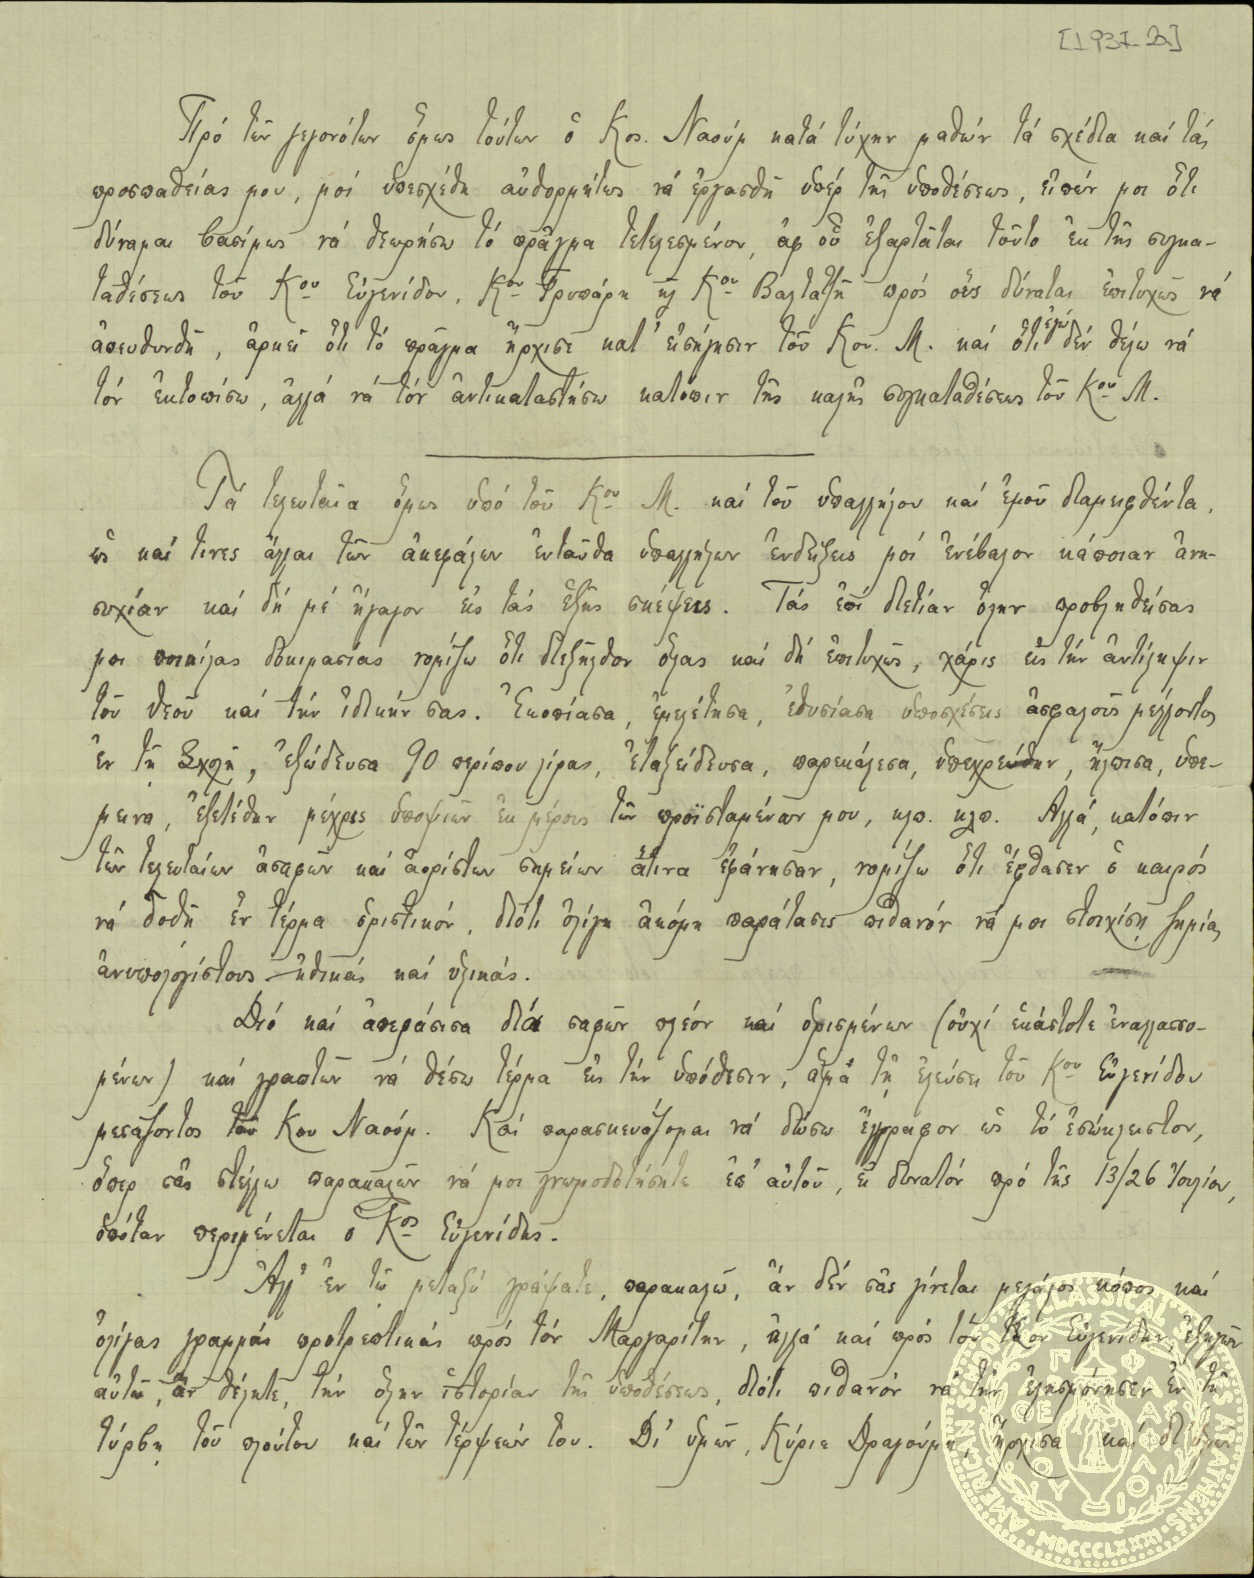 [1937-2α]
Πρό τῶν γεγονότων ὅμως τούτων ὁ Κος. Ναούμ κατά τύχην μαθών τά σχέδια καί τάς
προσπαθείας μου, μοί ὑπεσχέθη αὐθορμήτως νά ἐργασθῇ ὑπέρ τῆς ὑποθέσεως, εἰπών μοι ὅτι
δύναμαι βασίμως νά θεωρήσω τό πρᾶγμα τετελεσμένον, ἀφ' οὗ ἐξαρτᾶται τοῦτο ἐκ τῆς συγκα-
ταθέσεως τοῦ Κου Εὐγενίδου, Κου Γρυπάρη ἤ Κου Βαλτατζῆ πρός οὕς δύναται ἐπιτυχῶς νά
ἀπευθυνθῇ, ἀρκεῖ ὅτι τό πρᾶγμα ἤρχισε κατ' εἰσήγησιν τοῦ Κου. Μ. καί ὅτι ἐγώ δέν θέλω νά
τόν ἐκτοπίσω, ἀλλά νά τόν ἀντικαταστήσω κατόπιν τῆς καλῆς συγκαταθέσεως τοῦ Κου Μ.
Τά τελευταῖα ὅμως ὑπό τοῦ Κου Μ. καί τοῦ ὑπαλλήλου καί ἐμοῦ διαμειφθέντα,
ὡς καί τινες ἄλλαι τῶν ἀκεφάλων ἐνταῦθα ὑπαλλήλων ἐνδείξεις μοί ἐνέβαλον κάποιαν ἀνη-
συχίαν καί δή μέ ἤγαγον εἰς τάς ἑξῆς σκέψεις. Τάς ἐπί διετίαν ὅλην προβληθείσας
μοι ποικίλας δοκιμασίας νομίζω ὅτι διεξῆλθον ὅλας καί δή ἐπιτυχῶς, χάρις εἰς τήν ἀντίληψιν
τοῦ Θεοῦ καί τήν ἰδικήν σας. Ἐκοπίασα, ἐμελέτησα, ἐθυσίασα ὑποσχέσεις ἀσφαλοῦς μέλλοντος
ἐν τῇ Σχολῇ, ἐξώδευσα 90 περίπου λίρας, ἐταξείδευσα, παρεκάλεσα, ὑπεχρεώθην, ἤλπισα, ὑπέ-
μεινα, ἐξετέθην μέχρις ὑποψιῶν ἐκ μέρους τῶν προϊσταμένων μου, κλπ. κλπ. Ἀλλά, κατόπιν
τῶν τελευταίων ἀσαφῶν καί ἀορίστων σημείων ἅτινα ἐφάνησαν, νομίζω ὅτι ἔφθασεν ὁ καιρός
νά δοθῇ ἕν τέρμα ὁριστικόν, διότι ὀλίγη ἀκόμη παράτασις πιθανόν νά μοι στοιχίσῃ ζημίας
ἀνυπολογίστους ἠθικάς καί ὑλικάς.
Διό καί ἀπεφάσισα διά σαφῶν πλέον καί ὁρισμένων (οὐχί ἑκάστοτε ἐναλλασσο-
μένων) καί γραπτῶν νά θέσω τέρμα εἰς τήν ὑπόθεσιν, ἅμα τῇ ἐλεύσει τοῦ Κου Εὐγενίδου
μεσάζοντος τοῦ Κου Ναούμ. Καί παρασκευάζομαι νά δώσω ἔγγραφον ὡς τό ἐσώκλειστον,
ὅπερ σᾶς στέλλω παρακαλῶν νά μοι γνωμοδοτήσητε ἐπ' αὐτοῦ, εἰ δυνατόν πρό τῆς 13/26 Ἰουλίου,
ὁπόταν περιμένεται ὁ Κος Εὐγενίδης.
Ἀλλ' ἐν τῷ μεταξύ γράψατε, παρακαλῶ, ἄν δέν σᾶς γίνεται μεγάλος κόπος καί
ὀλίγας γραμμάς προτρεπτικάς πρός τόν Μαργαρίτην, ἀλλά καί πρός τόν Κον Εὐγενίδην, ἐξηγῶν
αὐτῷ, ἄν θέλητε, τήν ὅλην ἱστορίαν τῆς ὑποθέσεως, διότι πιθανόν νά τήν ἐλησμόνησεν ἐν τῇ
τύρβῃ τοῦ πλούτου καί τῶν τέρψεών του. Δι' ὑμῶν, Κύριε Δραγούμη, ἤρχισα καί δι' ὑμῶν
AMERICAN SCHOOL OF CLASSICAL STUDIES AT ATHENS · MDCCCLXXXI ·